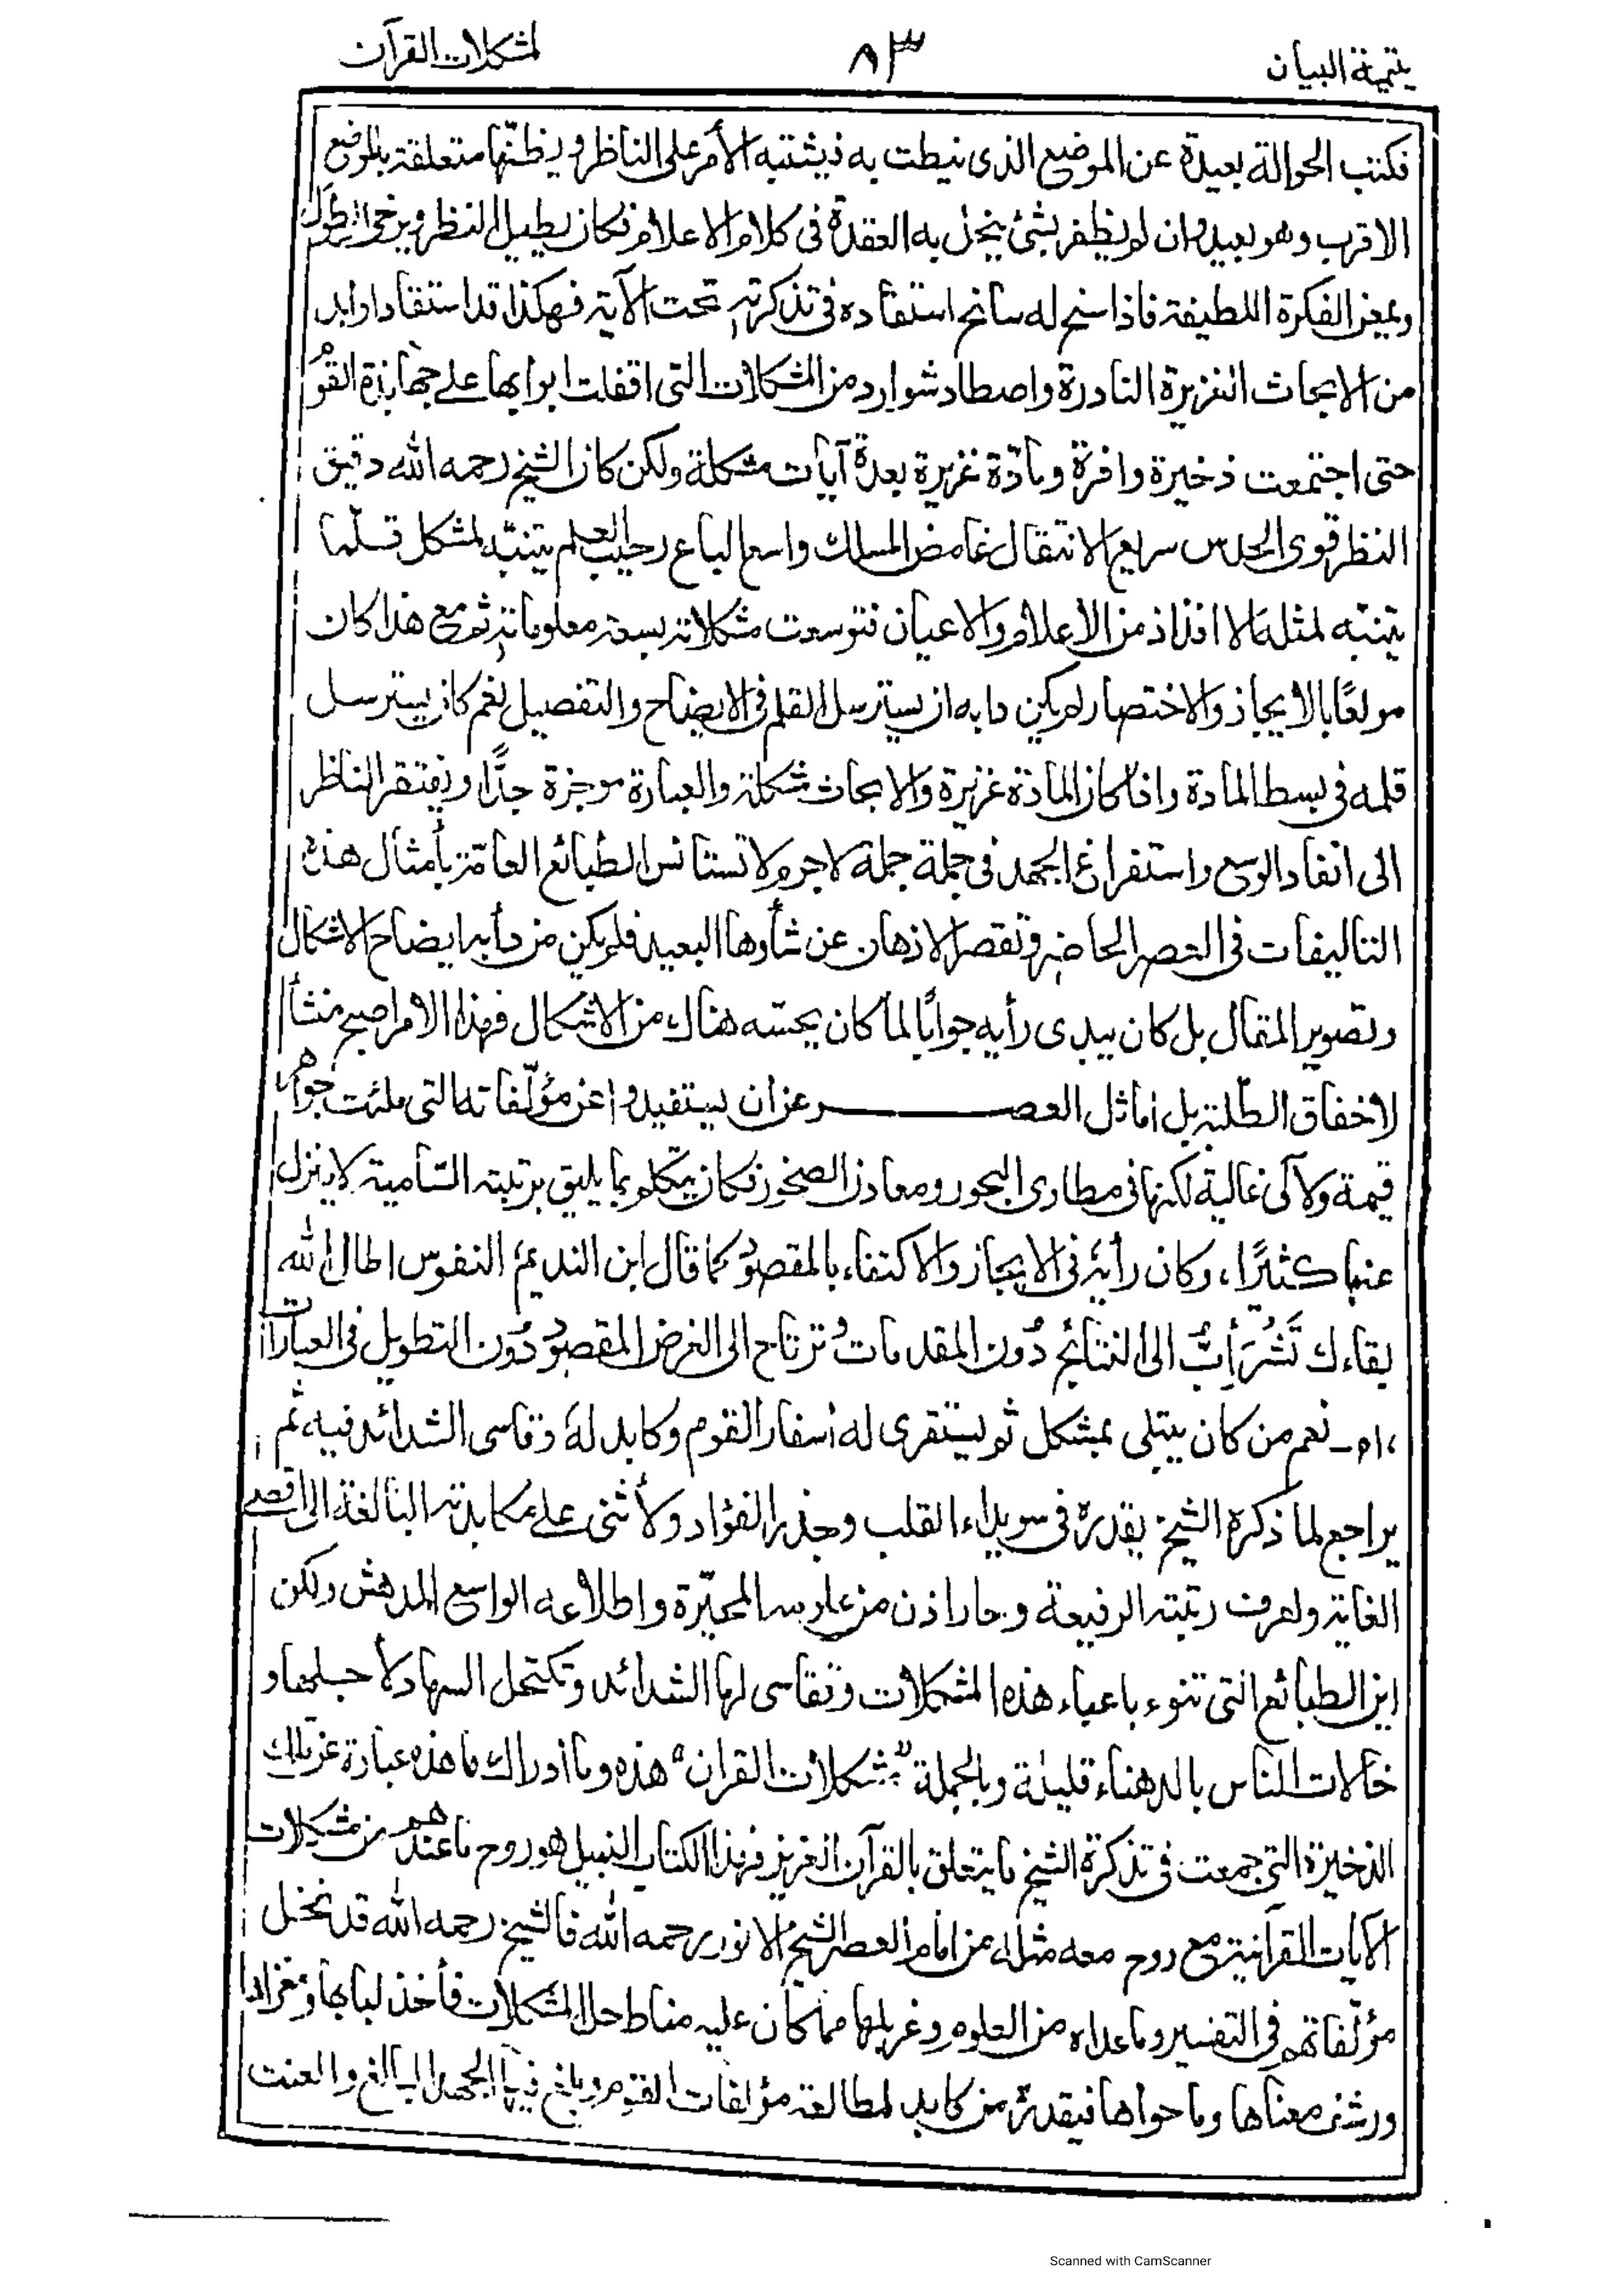 يتيمة البيان ٨٣ لمشكلات القرآن
فكتب الحوالة بعيدة عن الموضع الذى نيطت به فيشتبه الأمر على الناظر ويظنّها متعلقة بالموضع
الاقرب وهو بعيد وان لم يظفر بشئ ينحل به العقدة فى كلام الاعلام فكان يطيل النظر ويرخى الطِوَل
ويمعن الفكرة اللطيفة فاذا سنح له سانح استفاده فى تذكرته تحت الآية فهكذا قد استقاد اوابد
من الابحاث الغزيرة النادرة واصطاد شوارد من المشكلات التى اقفلت ابوابها على جهابذة القوم
حتى اجتمعت ذخيرة وافرة ومادّة غزيرة بعدة آيات مشكلة ولكن كان الشيخ رحمه الله دقيق
النظر قوى الحدس سريع الانتقال غامض المسلك واسع الباع رحيب العلم يتنبّه لمشكل قلّما
يتنبّه لمثله الا افذاذ من الاعلام والاعيان فتوسعت مشكلاته بسعة معلوماته ثم مع هذا كان
مولعًا بالايجاز والاختصار لم يكن دابه ان يسترسل القلم فى الايضاح والتفصيل نعم كان يسترسل
قلمه فى بسط المادة واذا كان المادة غزيرة والابحاث مشكلة والعبارة موجزة جدًّا ويفتقر الناظر
الى انفاد الوسع واستفراغ الجهد فى جملة جملة لا جرم لا تستانس الطبائع العامّة بأمثال هذه
التاليفات فى العصر الحاضر وتقصر الاذهان عن شأوها البعيد فلم يكن من دأبه ايضاح الاشكال
وتصوير المقال بل كان يبدى رأيه جوابًا لما كان يحسّه هناك من الاشكال فهذا الامر اصبح منشأ
لاخفاق الطلبة بل اماثل العصر عن ان يستفيدوا عن مؤلّفاته التى ملئت جواهر
قيمة ولآلى غالية لكنها فى مطاوى البحور ومعادن الصخور فكان يتكلم بما يليق برتبته السّامية لا ينزل
عنها كثيرًا، وكان رأيه فى الايجاز والاكتفاء بالمقصود كما قال ابن النديم النفوس اطال الله
بقاءك تَشْرَأِبُّ الى النتائج دون المقدمات وترتاح الى الغرض المقصود دون التطويل فى العبارات
،اه ـ نعم من كان يبتلى بمشكل ثم يستقرى له اسفار القوم وكابد له وقاسى الشدائد فيه، ثم
يراجع لما ذكره الشيخ يقدره فى سويداء القلب وجذر الفؤاد ولأثنى على مكابدته البالغة الى اقصى
الغاية ولعرف رتبته الرفيعة وحار اذن من علومه المحيّرة واطلاعه الواسع المدهش ولكن
اين الطبائع التى تنوء باعباء هذه المشكلات وتقاسى لها الشدائد وتكتحل السهاد لأجلها و
خآلات الناس بالدهناء قليلة وبالجملة "مشكلات القران" هذه وما أدراك ما هذه عبارة عن تلك
الذخيرة التى جمعت فى تذكرة الشيخ ما يتعلق بالقرآن العزيز فهذا الكتاب النبيل هو روح ما عندهم من مشكلات
الآيات القرآنية مع روح معه مثله من امام العصر الشيخ الانور رحمه الله فالشيخ رحمه الله قد نخل
مؤلّفاتهم فى التفسير وما عداه من العلوم وغربلها مما كان عليه مناط حل المشكلات فأخذ لبابها ومغزاها
ورشف معناها وما حواها فيقدره من كابد لمطالعة مؤلفات القوم وبلغ فيها الجهد البالغ والعنت
Scanned with CamScanner